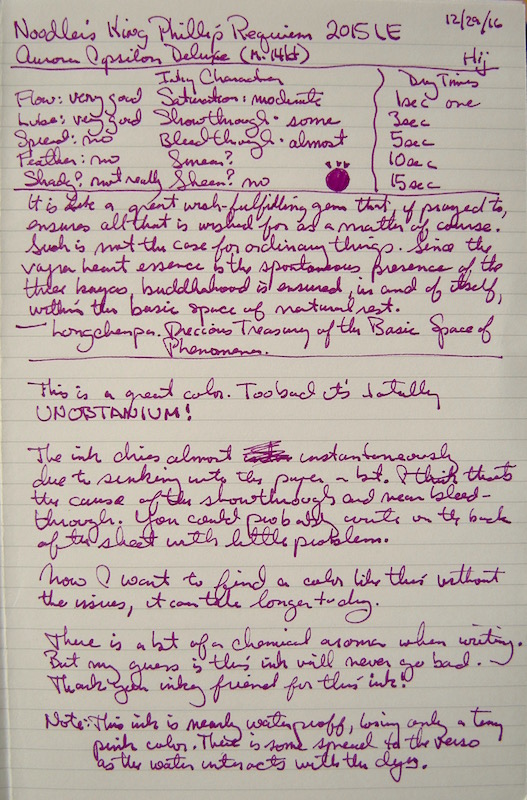 Noodler's King Phillip Requiem 2015 LE 12/29/16
Aurora Ipsilon Deluxe (M. 14kt) Hij
Inky Characters Dry Times
Flow: very good Saturation: moderate 1sec one
Lube: very good Showthrough: some 3sec
Spread: no Bleedthrough: almost 5sec
Feather: no Smear? 10sec
Shady? not really Sheen? no 15sec
It is like a great wish-fulfilling gem that, if prayed to,
ensures all that is wished for as a matter of course.
Such is not the case for ordinary things. Since the
vajra heart essence is the spontaneous presence of the
three kayas, buddhahood is ensured, in and of itself,
within the basic space of natural rest.
— Longchenpa. Precious Treasury of the Basic Space of
Phenomena.
This is a great color. Too bad it's totally
UNOBTANIUM!
The ink dries almost instantaneously
due to sinking into the paper a bit. I think that's
the cause of the showthrough and near bleed-
through. You could probably write on the back
of the sheet with little problem.
Now I want to find a color like this without
the issues, it can take longer to dry.
There is a bit of a chemical aroma when writing.
But my guess is this ink will never go bad. –
Thank you inky friend for this ink!
Note: This ink is nearly waterproof, losing only a tiny
pink color. There is some spread to the verso
as the water interacts with the dyes.